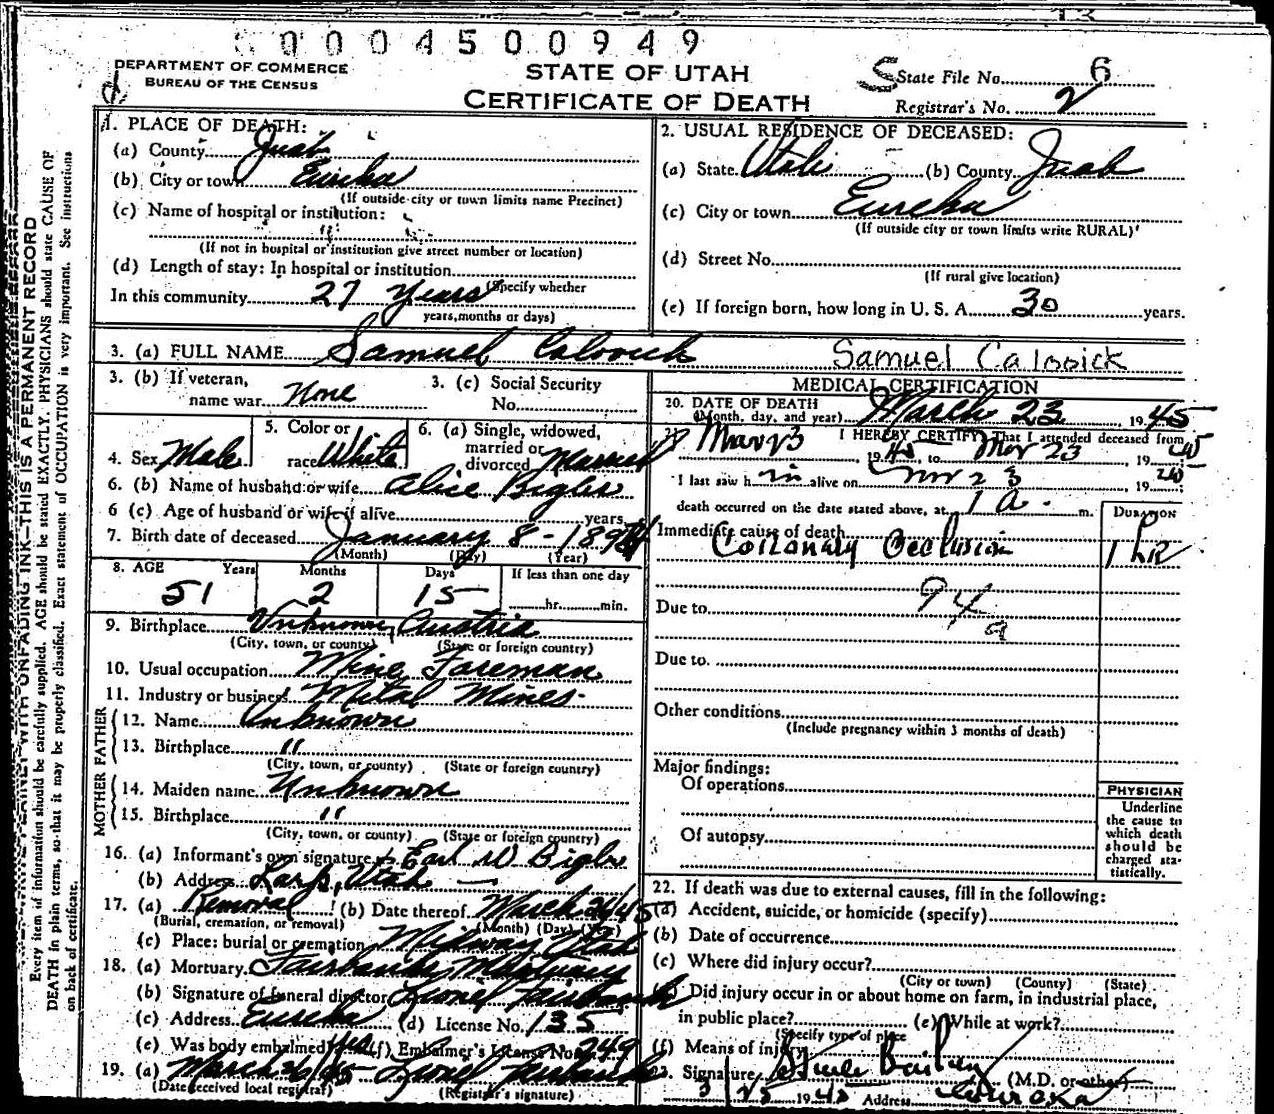 0 0 0 4 5 0 0 9 4 9
DEPARTMENT OF COMMERCE
BUREAU OF THE CENSUS
STATE OF UTAH
CERTIFICATE OF DEATH
S State File No. 6
Registrar's No. 2
Every item of information should be carefully supplied. AGE should be stated EXACTLY. PHYSICIANS should state CAUSE OF
DEATH in plain terms, so that it may be properly classified. Exact statement of OCCUPATION is very important. See instructions
on back of certificate.
UNFADING INK—THIS IS A PERMANENT RECORD
1. PLACE OF DEATH:
(a) County Juab
(b) City or town Eureka
(If outside city or town limits name Precinct)
(c) Name of hospital or institution:
"
(If not in hospital or institution give street number or location)
(d) Length of stay: In hospital or institution
(Specify whether
In this community 27 years
years, months or days)
2. USUAL RESIDENCE OF DECEASED:
(a) State Utah (b) County Juab
(c) City or town Eureka
(If outside city or town limits write RURAL)
(d) Street No.
(If rural give location)
(e) If foreign born, how long in U. S. A. 30 years.
3. (a) FULL NAME Samuel Calovich Samuel Calovick
3. (b) If veteran,
name war None
3. (c) Social Security
No.
4. Sex Male
5. Color or
race White
6. (a) Single, widowed,
married or
divorced Married
6. (b) Name of husband or wife Alice Bigler
6 (c) Age of husband or wife if alive years
7. Birth date of deceased January 8 - 1894
(Month) (Day) (Year)
8. AGE Years Months Days If less than one day
51 2 15 hr. min.
9. Birthplace Unknown, Austria
(City, town, or county) (State or foreign country)
10. Usual occupation Mine Foreman
11. Industry or business Metal Mines
FATHER
12. Name Unknown
13. Birthplace "
(City, town, or county) (State or foreign country)
MOTHER
14. Maiden name Unknown
15. Birthplace "
(City, town, or county) (State or foreign country)
16. (a) Informant's own signature Earl W Bigler
(b) Address Utah
17. (a) Removal (b) Date thereof March
(Burial, cremation, or removal) (Month) (Day) (Year)
(c) Place: burial or cremation Midway Utah
18. (a) Mortuary Fairbanks Mortuary
(b) Signature of funeral director Lionel Fairbanks
(c) Address Eureka (d) License No. 135
(e) Was body embalmed? yes (f) Embalmer's License No. 249
19. (a) March Lionel Fairbanks
(Date received local registrar) (Registrar's signature)
MEDICAL CERTIFICATION
20. DATE OF DEATH
(Month, day, and year) March 23 1945
21. I HEREBY CERTIFY, That I attended deceased from
Mar 23 1945 to Mar 23 1945
I last saw him alive on Mar 23 19
death occurred on the date stated above, at 1 a. m.
DURATION
Immediate cause of death
Coronary Occlusion 1 hr
94
a
Due to
Due to
Other conditions
(Include pregnancy within 3 months of death)
Major findings:
Of operations
Of autopsy
PHYSICIAN
Underline
the cause to
which death
should be
charged sta-
tistically.
22. If death was due to external causes, fill in the following:
(a) Accident, suicide, or homicide (specify)
(b) Date of occurrence
(c) Where did injury occur?
(City or town) (County) (State)
Did injury occur in or about home on farm, in industrial place,
in public place? (e) While at work?
(Specify type of place
(f) Means of injury
23. Signature Steele Bailey (M.D. or other)
3/25 1945 Address Eureka